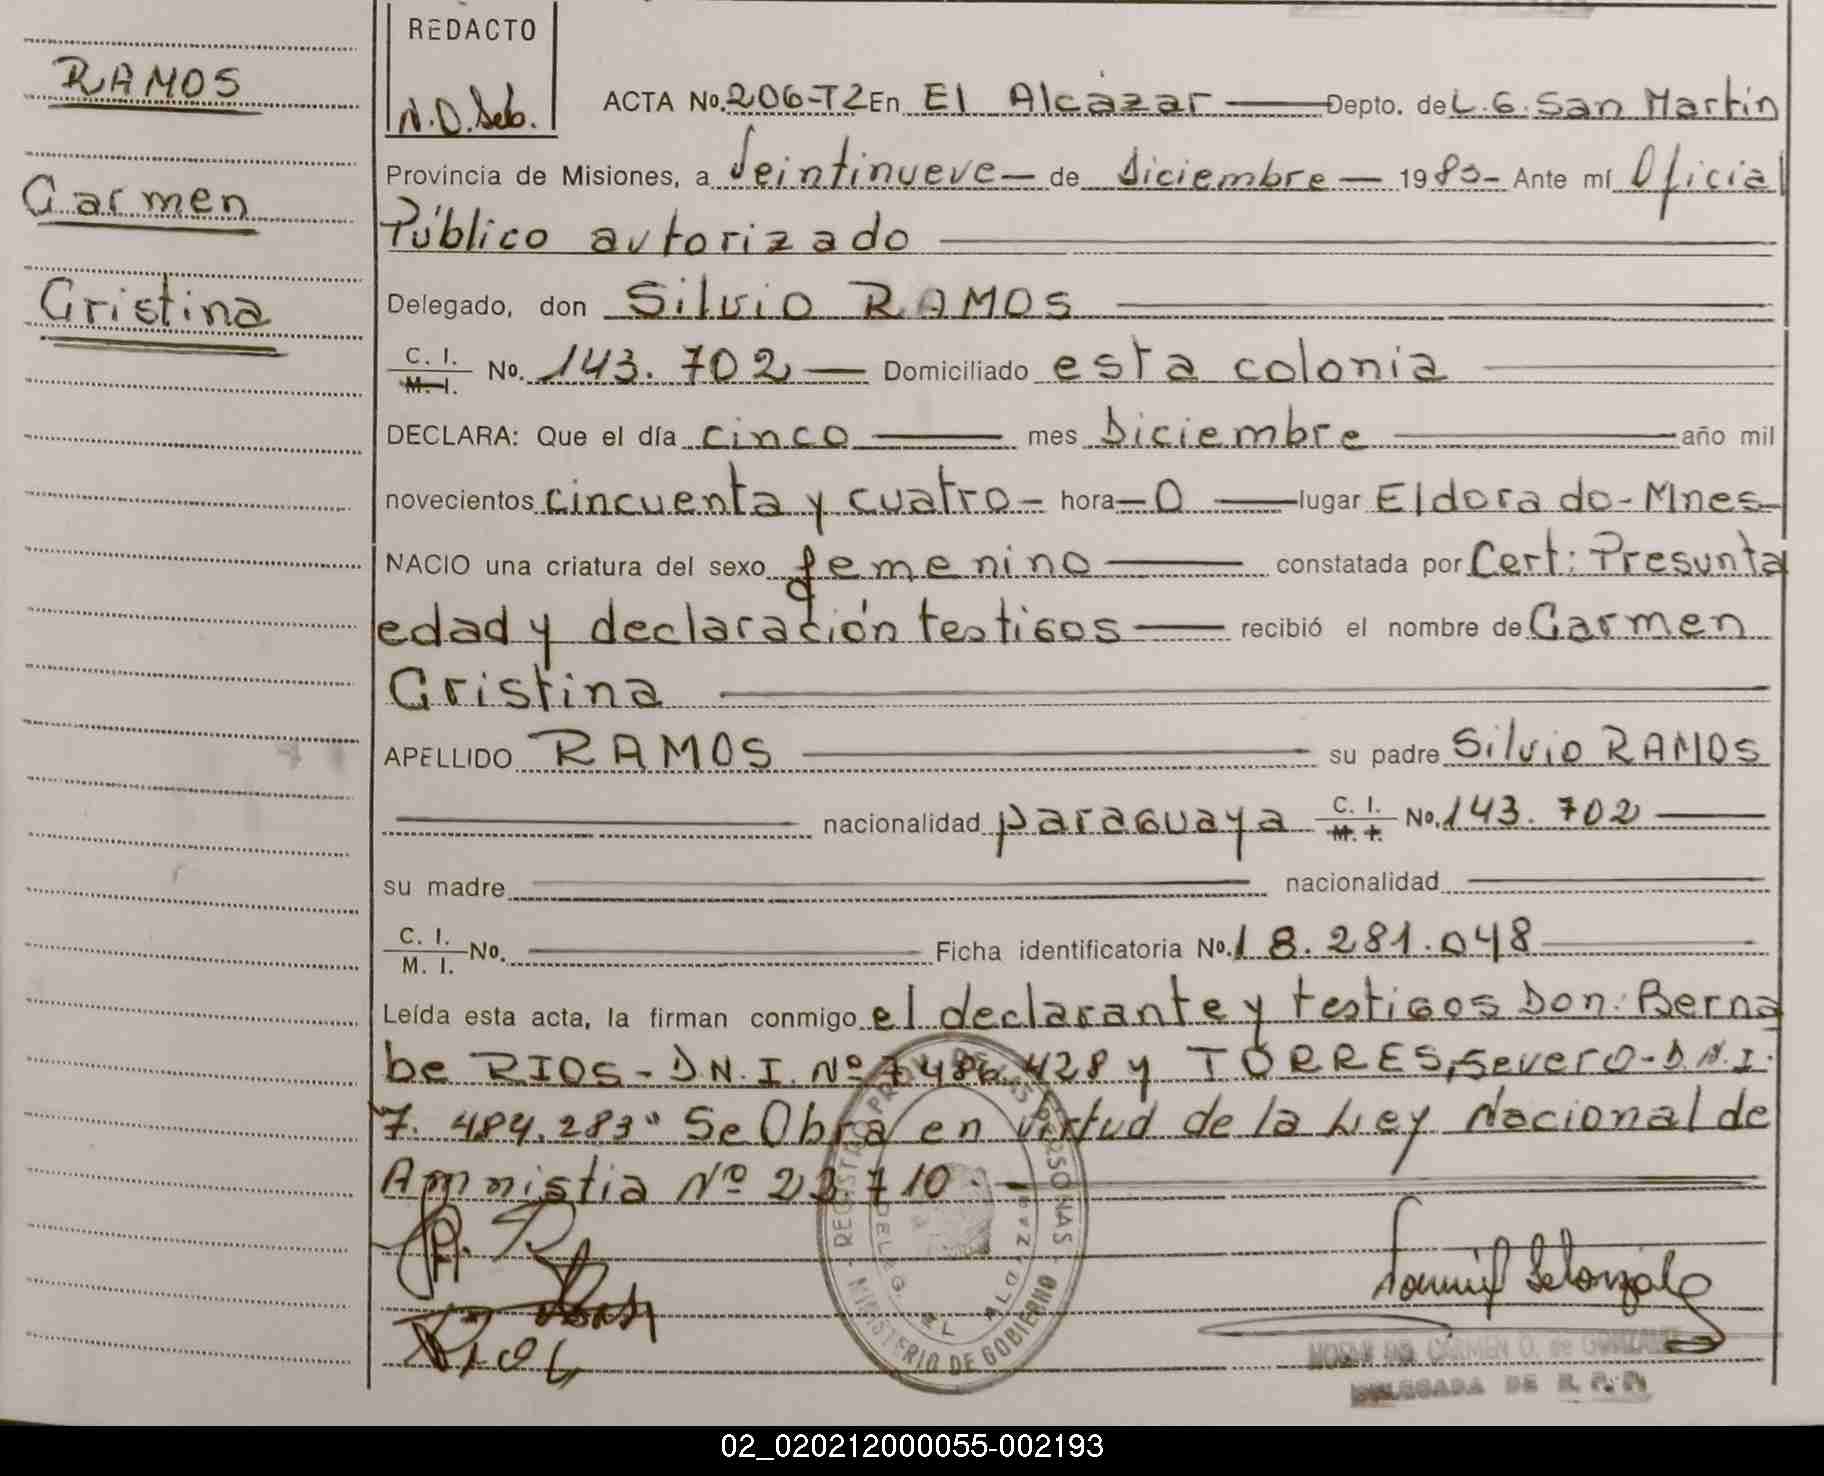 RAMOS
Carmen
Cristina
REDACTO
ACTA No. 206-T2 En El Alcázar Depto. de L. G. San Martín
Provincia de Misiones, a Veintinueve de Diciembre 1989 Ante mí Oficial
Público autorizado
Delegado, don Silvio RAMOS
C. I. M. I. No. 143.702 Domiciliado esta colonia
DECLARA: Que el día cinco mes Diciembre año mil
novecientos cincuenta y cuatro - hora - 0 lugar Eldorado - Mnes-
NACIO una criatura del sexo femenino constatada por Cert: Presunta
edad y declaración testigos recibió el nombre de Carmen
Cristina
APELLIDO RAMOS su padre Silvio RAMOS
nacionalidad paraguaya C. I. M. I. No. 143.702
su madre nacionalidad
C. I. M. I. No. Ficha identificatoria No. 18.281.048
Leída esta acta, la firman conmigo el declarante y testigos Don: Berna
be RIOS - D.N.I. Nº 7.486.428 y TORRES, Severo - D.N.I.
7.484.283" Se Obra en virtud de la Ley Nacional de
Amnistia Nº 23710.-
REGISTRO PROV. DE LAS PERSONAS
MINISTERIO DE GOBIERNO
CARMEN O. de GONZALEZ
DELEGADA DE R. P. P.
02_020212000055-002193